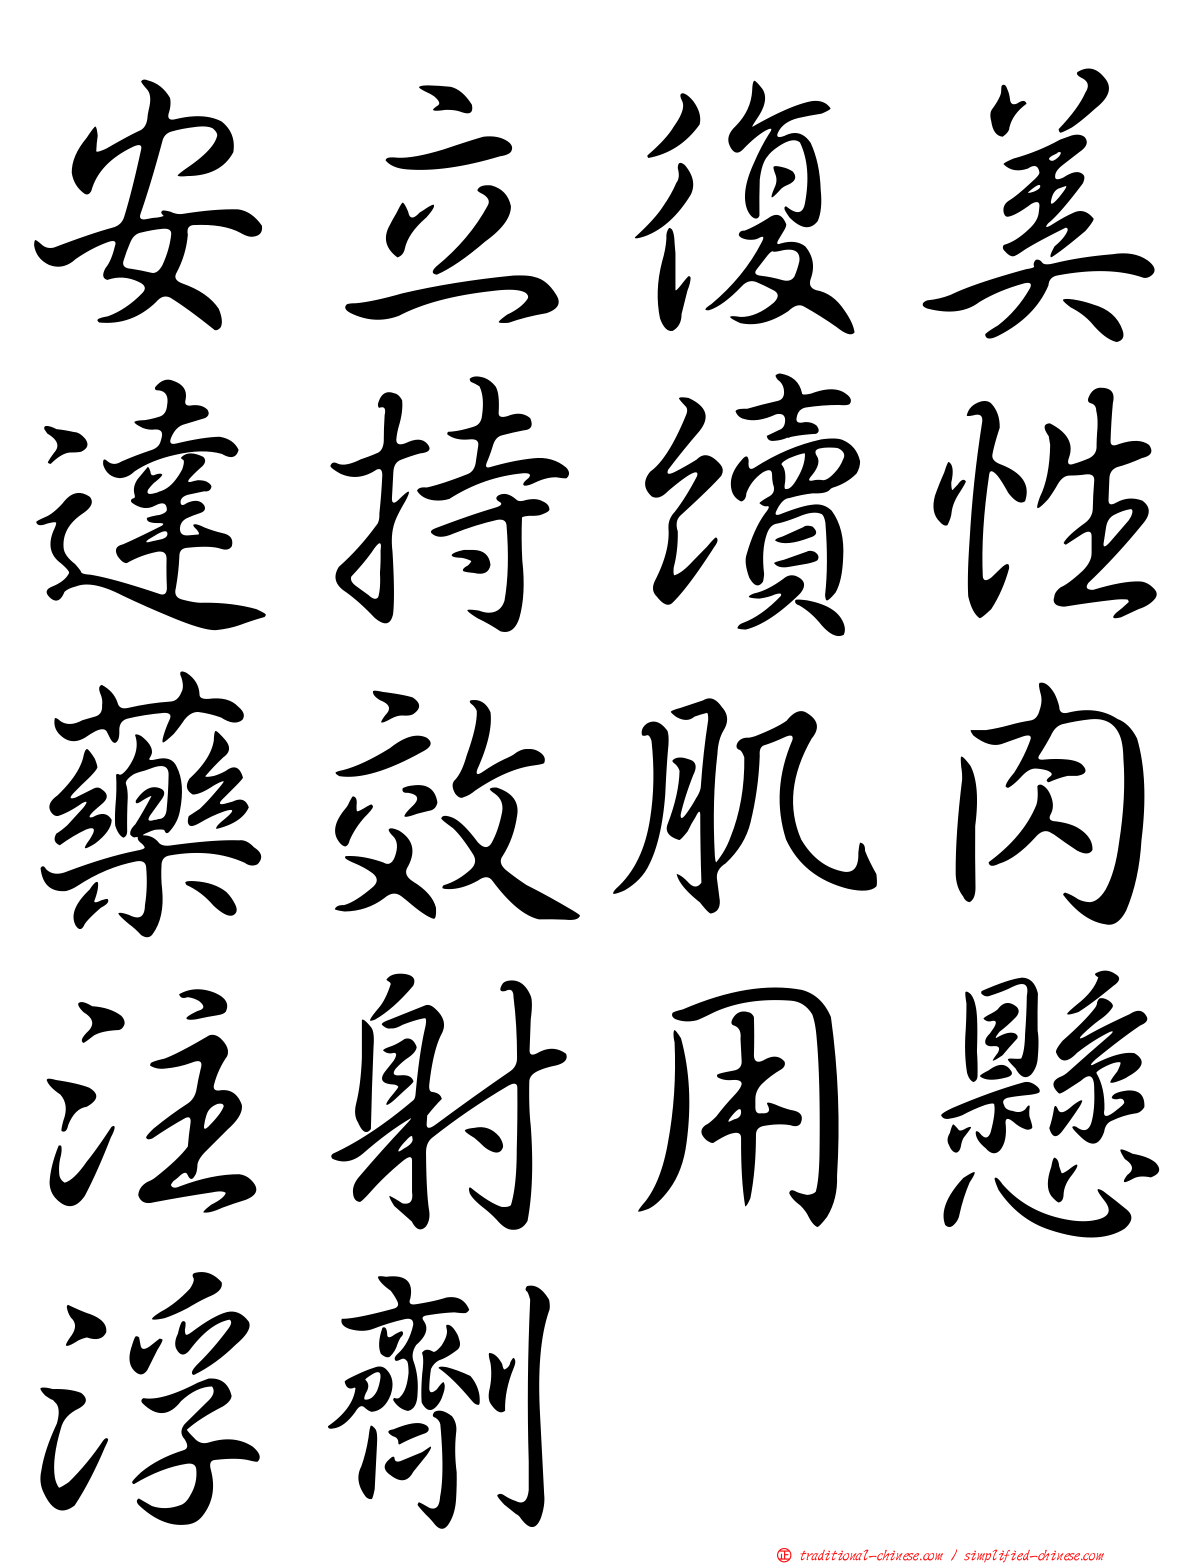 安立復美
達持續性
藥效肌肉
注射用懸
浮劑
正 traditional-chinese.com / simplified-chinese.com